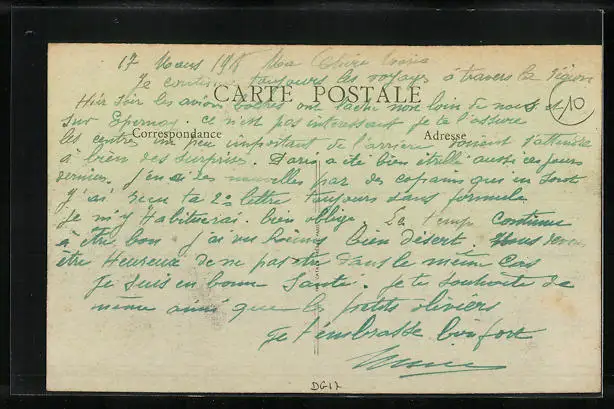 17 Mars 191 Ma Chère
Je continue toujours les voyages à travers la région
CARTE POSTALE
Hier soir les avions boches ont laché non loin de nous et
10
sur Epernay. ce n'est pas interessant je te l'assure
Correspondance
Adresse
les centres un peu important de l'arrière doivent s'attendre
à bien des surprises. Paris a été bien étrillé aussi ces jours
derniers. J'en ai des nouvelles par des copains qui en sont
J'ai reçu ta 2e lettre toujours sans formule
Je m'y Habituerai. bien obligé. Le temp continue
à être bon j'ai vu Reims bien désert. Vous devez
être Heureux de ne pas être dans le même cas
Je suis en bonne Santé. Je te souhaite de
même ainsi que les petits oliviers
Je t'embrasse bien fort
DG17